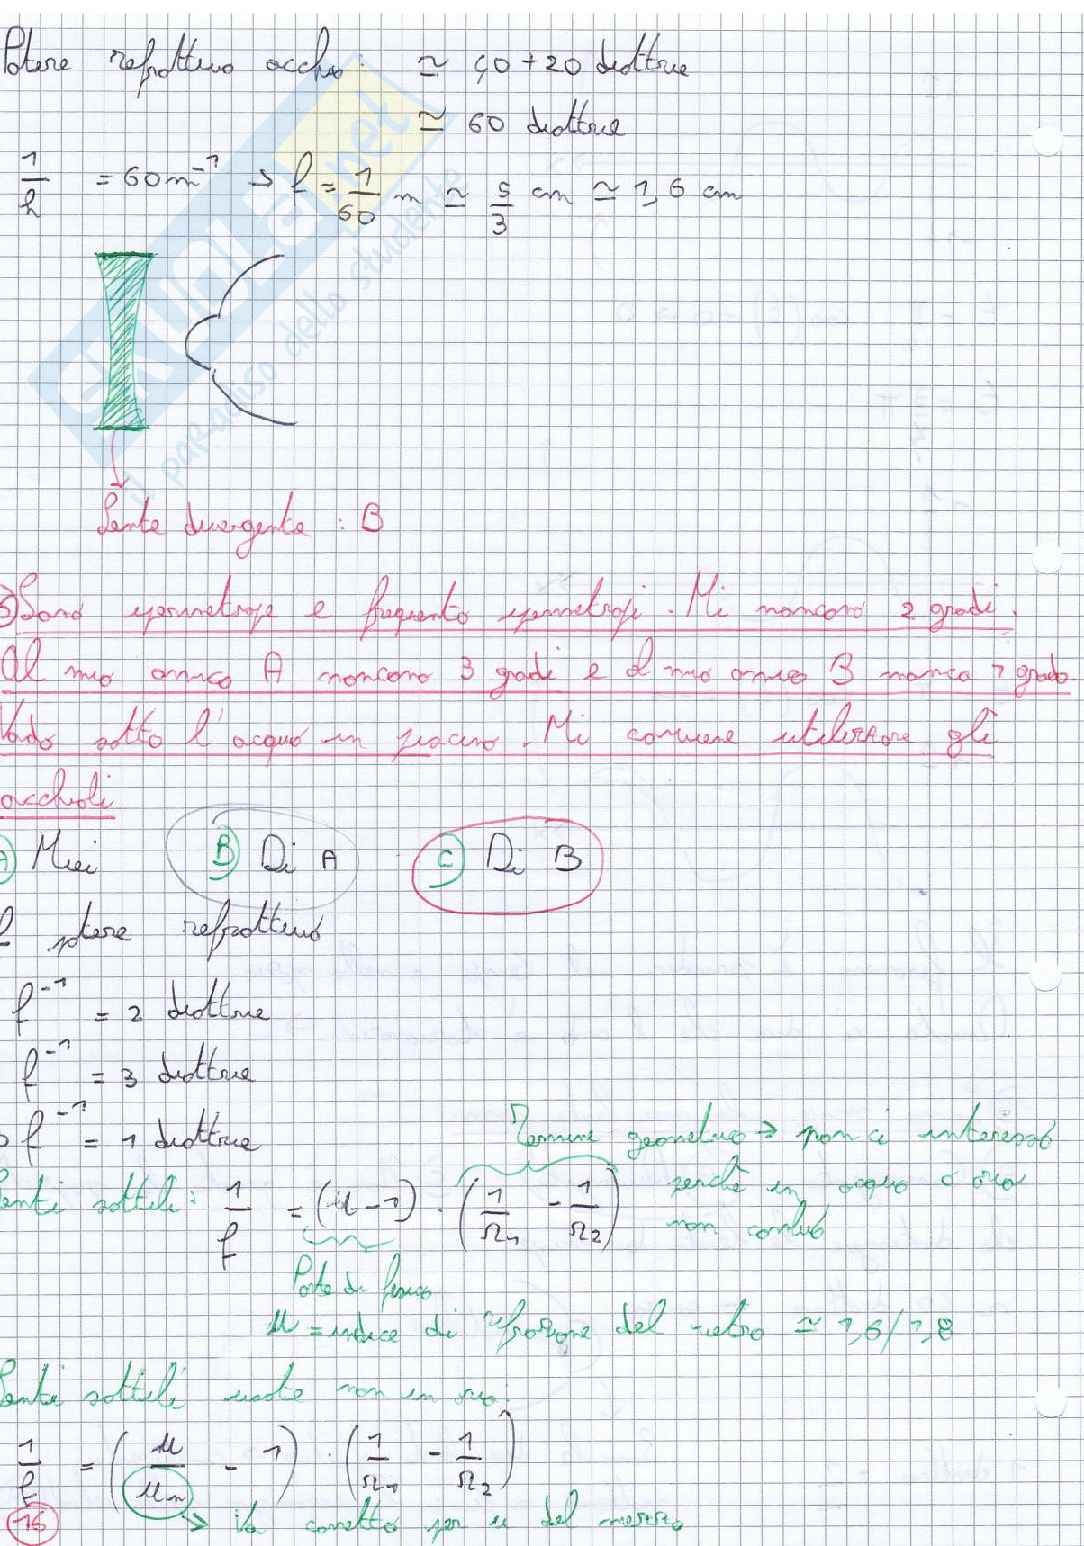 Potere refrattivo occhio: ≃ 40+20 diottrie
≃ 60 diottrie
1/f = 60 m⁻¹ → f = 1/60 m ≃ 5/3 cm ≃ 1,6 cm
Lente divergente: B
Sono ipermetrope e frequento ipermetropi. Mi mancano 2 gradi.
Al mio amico A mancano 3 gradi e al mio amico B manca 1 grado
Vado sotto l'acqua in piscina. Mi conviene utilizzare gli
occhiali
A) Miei B) Di A C) Di B
potere refrattivo
f⁻¹ = 2 diottrie
f⁻¹ = 3 diottrie
f⁻¹ = 1 diottrie
Termine geometrico → non ci interessa
perché in acqua o aria
non cambia
Lenti sottili: 1/f = (n-1) · (1/r₁ - 1/r₂)
Parte di fisica
n = indice di rifrazione del vetro ≃ 1,6/1,8
Lenti sottili usate non in aria:
1/f = (n/nₘ - 1) · (1/r₁ - 1/r₂)
→ Va corretto per n del mezzo
16
skuola.net
il paradiso dello studente